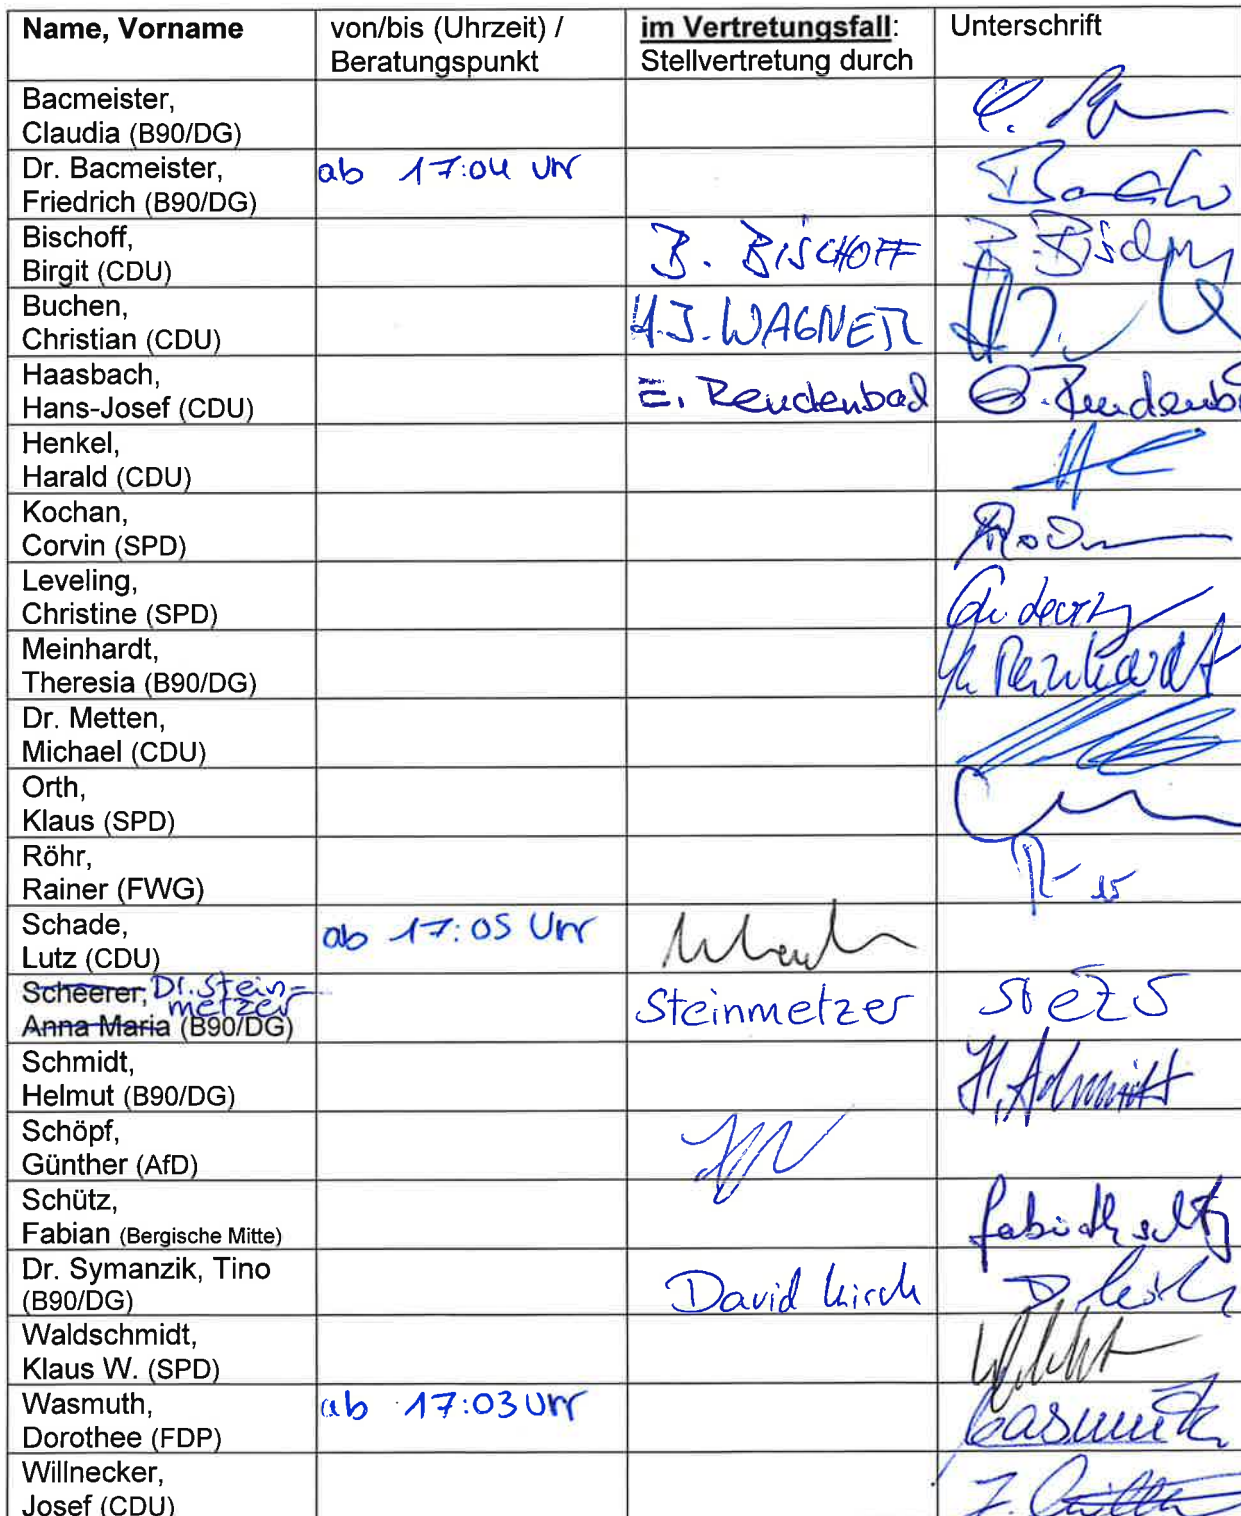 Name, Vorname
von/bis (Uhrzeit) /
Beratungspunkt
im Vertretungsfall:
Stellvertretung durch
Unterschrift
Bacmeister,
Claudia (B90/DG)
Dr. Bacmeister,
Friedrich (B90/DG)
ab 17:04 Uhr
Bischoff,
Birgit (CDU)
B. BISCHOFF
Buchen,
Christian (CDU)
H.J. WAGNER
Haasbach,
Hans-Josef (CDU)
E.
Henkel,
Harald (CDU)
Kochan,
Corvin (SPD)
Leveling,
Christine (SPD)
Meinhardt,
Theresia (B90/DG)
Dr. Metten,
Michael (CDU)
Orth,
Klaus (SPD)
Röhr,
Rainer (FWG)
Schade,
Lutz (CDU)
ab 17:05 Uhr
Scheerer, Dr. Stein-
metzer
Anna Maria (B90/DG)
Steinmetzer
Schmidt,
Helmut (B90/DG)
H. Schmidt
Schöpf,
Günther (AfD)
Schütz,
Fabian (Bergische Mitte)
Dr. Symanzik, Tino
(B90/DG)
David Kirch
Waldschmidt,
Klaus W. (SPD)
Wasmuth,
Dorothee (FDP)
ab 17:03 Uhr
Wasmuth
Willnecker,
Josef (CDU)